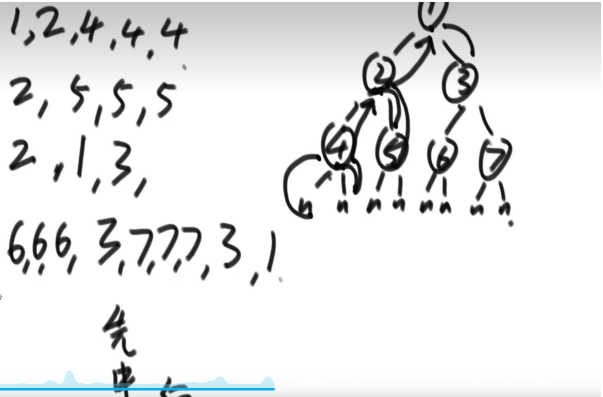 1,2,4,4,4
2,5,5,5
2,1,3,
6,6,6,3,7,7,7,3,1
先
中
1
2 3
4 5 6 7
n n n n n n n n